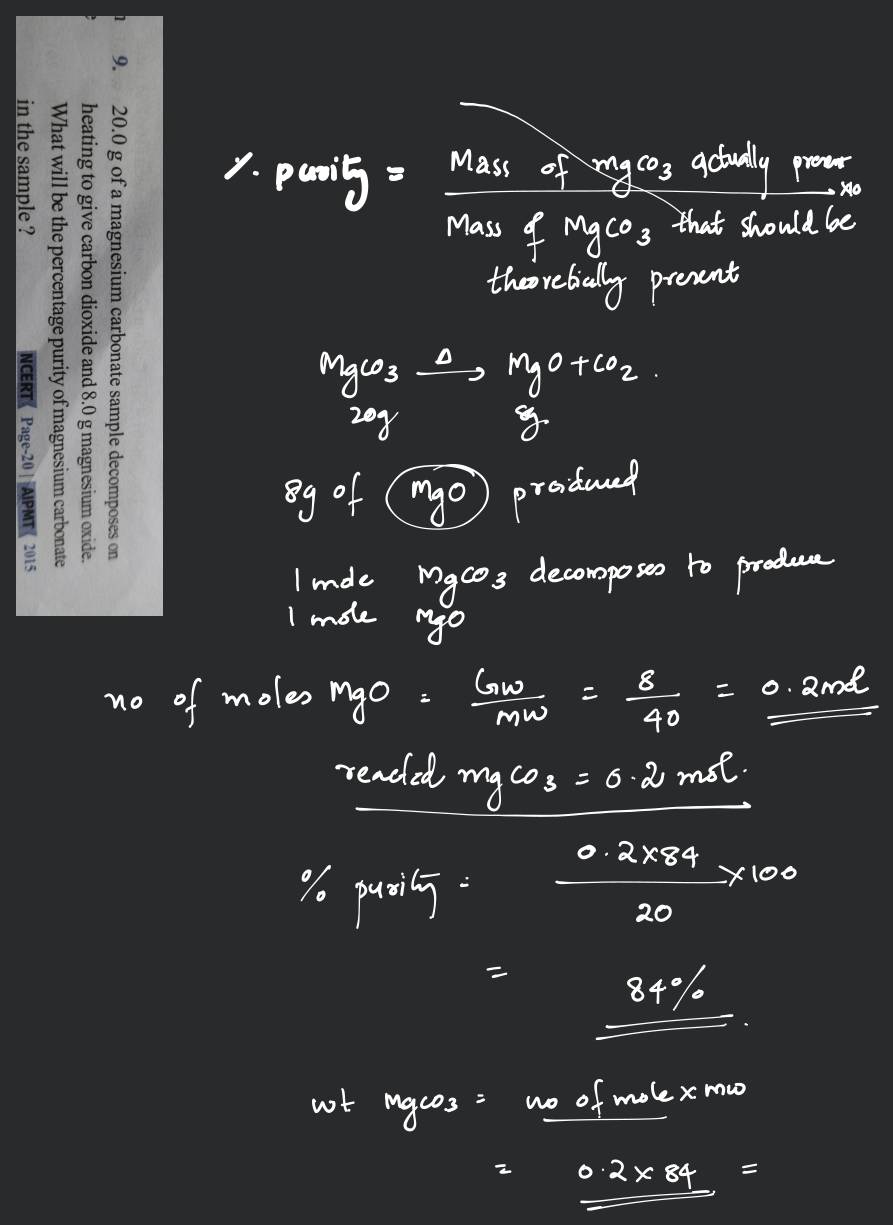 9. 20.0 g of a magnesium carbonate sample decomposes on
heating to give carbon dioxide and 8.0 g magnesium oxide.
What will be the percentage purity of magnesium carbonate
in the sample ?
NCERT Page-20 | AIPMT 2015
% purity = Mass of mgco3 actually present
Mass of Mgco3 that should be
present
Mgco3 Δ→ MgO + CO2 .
20g 8g
8g of MgO
1 mole Mgco3 decomposes to produce
1 mole MgO
no of moles MgO = GW/MW = 8/40 = 0.2 mol
reacted mgco3 = 0.2 mol.
% purity = 0.2x84/20 x100
= 84% .
wt Mgco3 = no of mole x mw
= 0.2 x 84 =